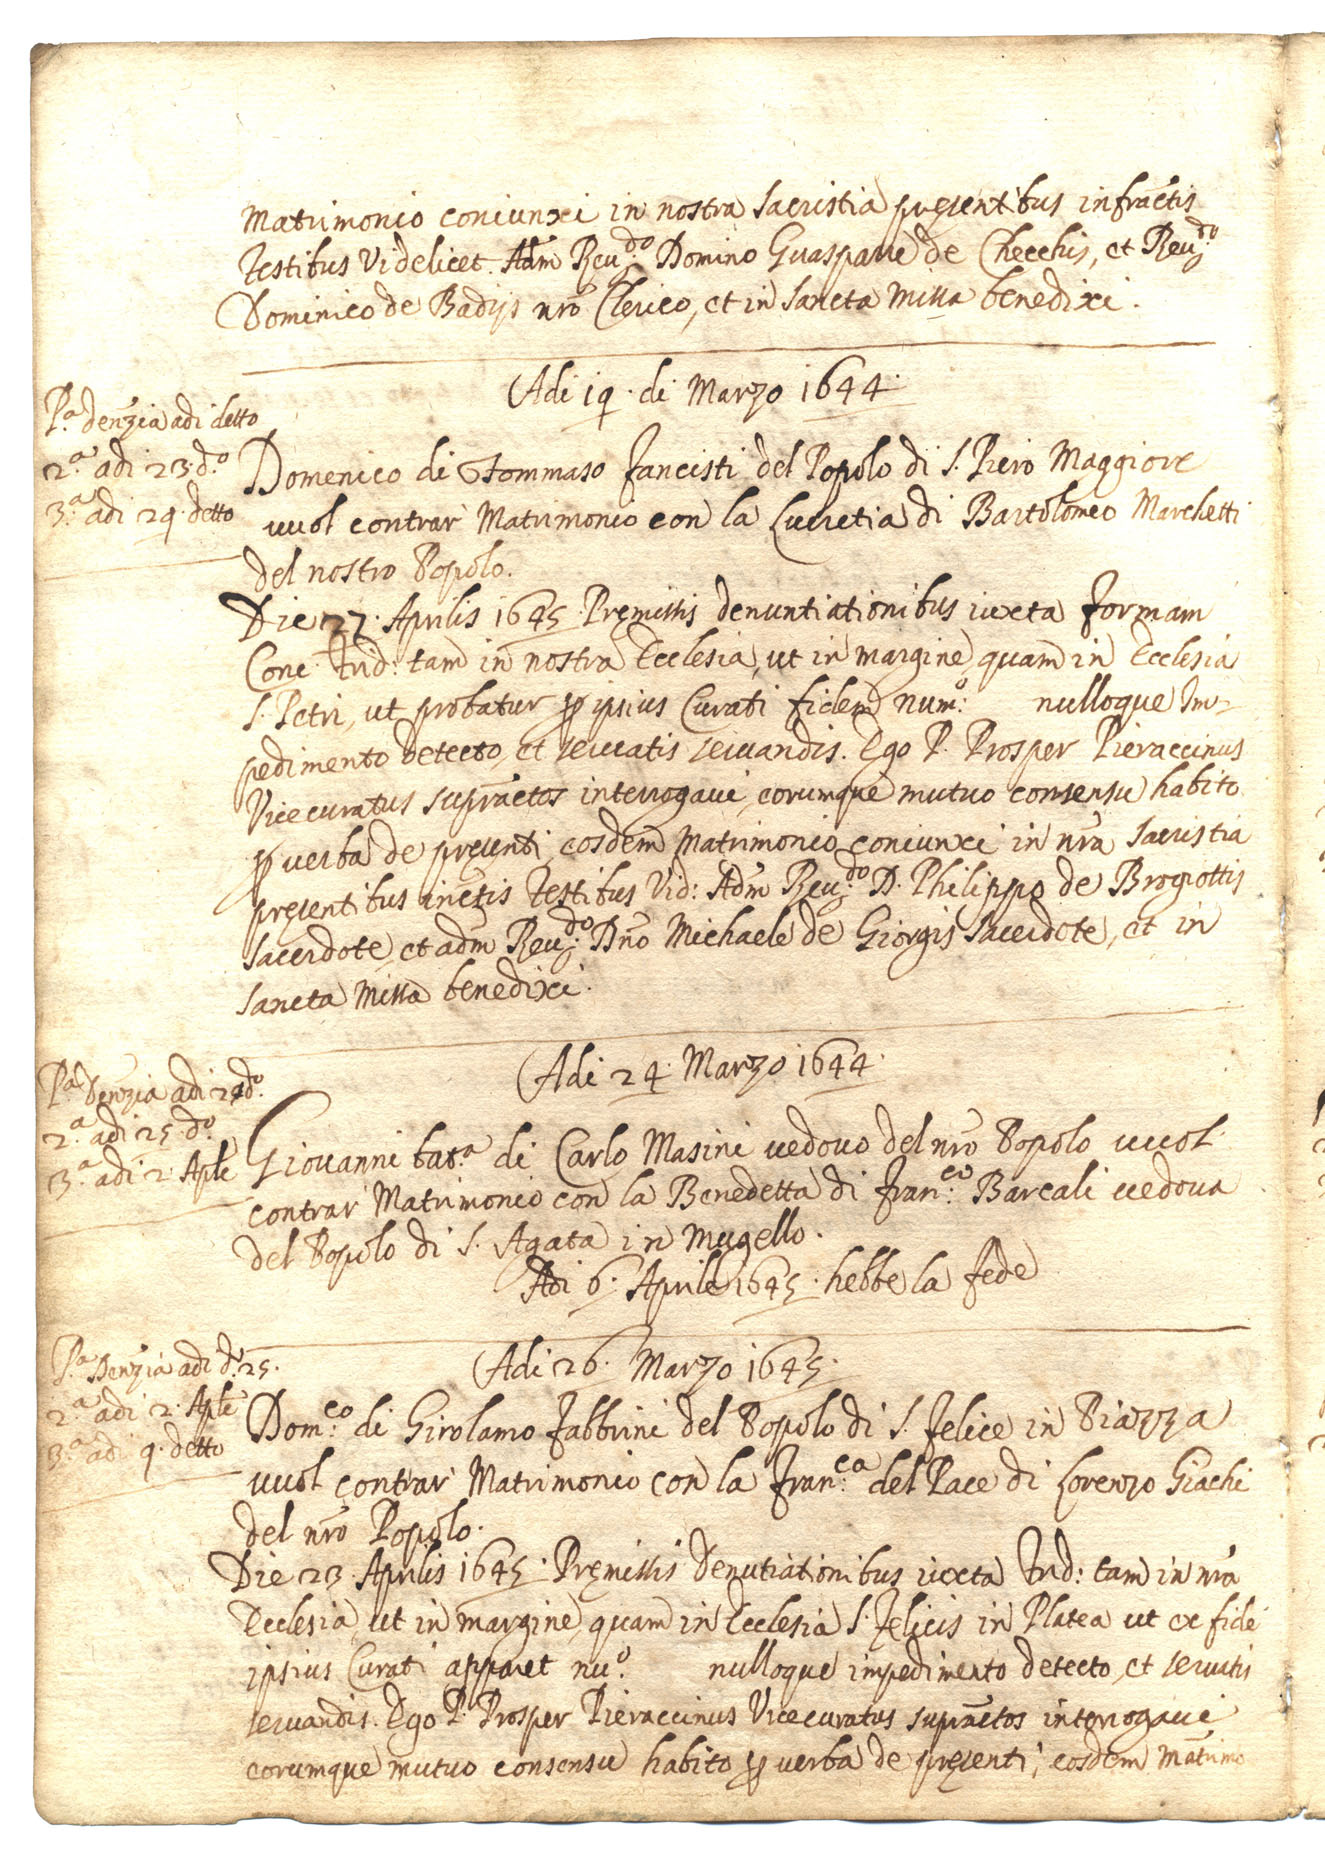 Matrimonio coniunxi in nostra Sacristia presentibus infra̅ctis
Testibus Videlicet Adm̅ Reu.do Domino Guaspare de Checchis, et Reu.do
Dominico de Badijs nr̅o Clerico, et in Sancta Missa benedixi.
Adi 19. di Marzo 1644.
P.a denz̅ia adi detto
2.a adi 23. d.o
3.a adi 29. detto
Domenico di Tommaso Fancisti del Popolo di S. Piero Maggiore
vuol contrar Matrimonio con la Lucretia di Bartolomeo Marchetti
del nostro Popolo.
Die 27. Aprilis 1645. Premissis denuntiationibus iuxta formam
Conc. Trid: tam in nostra Ecclesia, ut in margine, quam in Ecclesia
S. Petri, ut probatur ꝑ ipsius Curati fidem num.o nulloque Im-
pedimento detecto, et seruatis seruandis. Ego P. Prosper Pieraccinus
Vicecuratus supra̅ctos interrogaui, eorumque mutuo consensu habito
ꝑ verba de presenti, eosdem Matrimonio coniunxi in nr̅a Sacristia
presentibus in̅ctis Testibus Vid: Adm̅ Reu.do D. Philippo de Brogiottis
Sacerdote, et adm̅ Reu.do Dn̅o Michaele de Giorgis Sacerdote, et in
Sancta Missa benedixi.
Adi 24. Marzo 1644.
P.a Denz̅ia adi 24 d.o
2.a adi 25. d.o
3.a adi 2 Ap̅le
Giovanni bat.a di Carlo Masini vedovo del nr̅o Popolo vuol
contrar Matrimonio con la Benedetta di Fran.co Barcali vedova
del Popolo di S. Agata in Mugello.
Adi 6. Aprile 1645. hebbe la fede
Adi 26. Marzo 1645.
P.a Denz̅ia adi d.o 25.
2.a adi 2. Ap̅le
3.a adi 9. detto
Dom.co di Girolamo Fabbrini del Popolo di S. Felice in Piazza
vuol contrar Matrimonio con la Fran.ca del Pace di Lorenzo Giachi
del nr̅o Popolo.
Die 23. Aprilis 1645. Premissis denutiationibus iuxta Trid: tam in nr̅a
Ecclesia, ut in margine, quam in Ecclesia S. Felicis in Platea ut ex fide
ipsius Curati apparet nu.o nulloque impedimento detecto, et seruatis
seruandis. Ego P. Prosper Pieraccinus Vicecuratus supra̅ctos interrogaui
eorumque mutuo consensu habito ꝑ verba de presenti, eosdem Ma̅trimo